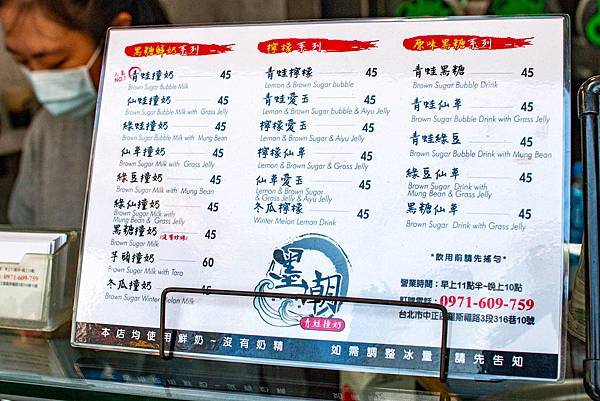 黑糖鮮奶系列
人氣NO.1
青蛙撞奶 45
Brown Sugar Bubble Milk
仙蛙撞奶 45
Brown Sugar Bubble Milk with Grass Jelly
綠蛙撞奶 45
Brown Sugar Bubble Milk with Mung Bean
仙草撞奶 45
Brown Sugar Milk with Grass Jelly
綠豆撞奶 45
Brown Sugar Milk with Mung Bean
綠仙撞奶 45
Brown Sugar Milk with Mung Bean & Grass Jelly
黑糖撞奶 (沒有珍珠) 45
Brown Sugar Milk
芋頭撞奶 60
Brown Sugar Milk with Taro
冬瓜撞奶 45
Brown Sugar Winter Melon Milk
檸檬系列
青蛙檸檬 45
Lemon & Brown Sugar bubble
青蛙愛玉 45
Lemon & Brown Sugar bubble & Aiyu Jelly
檸檬愛玉 45
Lemon & Brown Sugar & Aiyu Jelly
檸檬仙草 45
Lemon & Brown Sugar & Grass Jelly
仙草愛玉 45
Lemon & Brown Sugar
& Grass Jelly & Aiyu Jelly
冬瓜檸檬 45
Winter Melon Lemon Drink
原味黑糖系列
青蛙黑糖 45
Brown Sugar Bubble Drink
青蛙仙草 45
Brown Sugar Bubble Drink with Grass Jelly
青蛙綠豆 45
Brown Sugar Bubble Drink with Mung Bean
綠豆仙草 45
Brown Sugar Drink with
Mung Bean & Grass Jelly
黑糖仙草 45
Brown Sugar Drink with Grass Jelly
墨潮
青蛙撞奶
*飲用前請先搖勻*
營業時間:早上11點半~晚上10點
訂購電話:0971-609-759
台北市中正區羅斯福路3段316巷10號
本店均使用鮮奶~沒有奶精
如需調整冰量 請先告知
0971-609-759